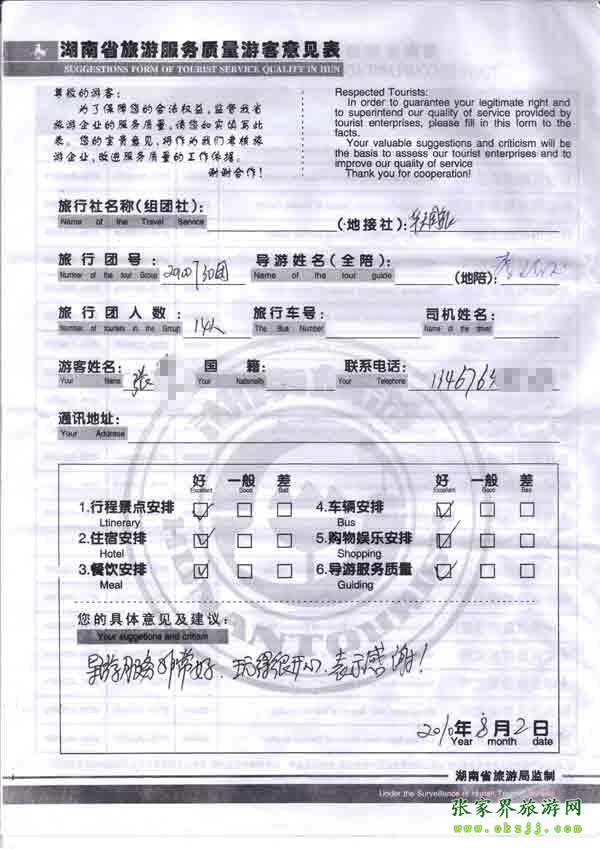 湖南省旅游服务质量游客意见表
SUGGESTIONS FORM OF TOURIST SERVICE QUALITY IN HUN
尊敬的游客：
为了保障您的合法权益，监督我省
旅游企业的服务质量，请您如实填写此
表。您的宝贵意见，将作为我们考核旅
游企业，改进服务质量的工作依据。
谢谢合作！
Respected Tourists:
In order to guarantee your legitimate right and
to superintend our quality of service provided by
tourist enterprises, please fill in this form to the
facts.
Your valuable suggestions and criticism will be
the basis to assess our tourist enterprises and to
improve our quality of service
Thank you for cooperation!
旅行社名称(组团社)：
Name of the Travel Service
(地接社)：
旅行团号：
Number of the tour Group
导游姓名(全陪)：
Name of the tour guide
(地陪)：
旅行团人数：
Number of tourists in the Group
14人
旅行车号：
The Bus Number
司机姓名：
Name of the driver
游客姓名：
Your Name
张
国籍：
Your Nationality
联系电话：
Your Telephone
通讯地址：
Your Address
好 一般 差
Excellent Good Bad
好 一般 差
Excellent Good Bad
1.行程景点安排
Ltinerary
2.住宿安排
Hotel
3.餐饮安排
Meal
4.车辆安排
Bus
5.购物娱乐安排
Shopping
6.导游服务质量
Guiding
您的具体意见及建议：
Your suggetions and critism
导游服务非常好、玩得很开心、表示感谢！
2010年8月2日
Year month date
湖南省旅游局监制
Under the Surveillance of Hunan Tourism
张家界旅游网
www.okzjj.com